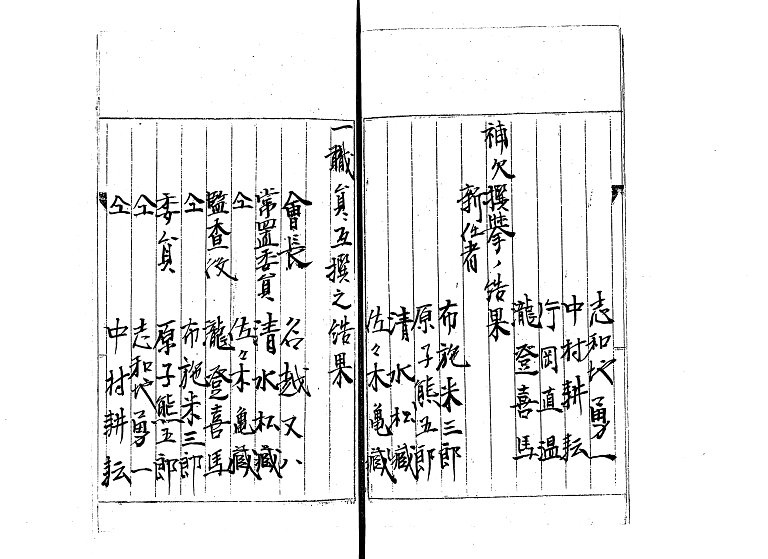 志和地勇一
中村耕耘
片岡直温
瀧登喜馬
補欠撰挙ノ結果
新任者
布施米三郎
原子熊五郎
清水松藏
佐々木亀藏
一職員互撰之結果
會長 名越又八
常置委員 清水松藏
仝 佐々木亀藏
監査役 瀧登喜馬
仝 布施米三郎
委員 原子熊五郎
仝 志和地勇一
仝 中村耕耘